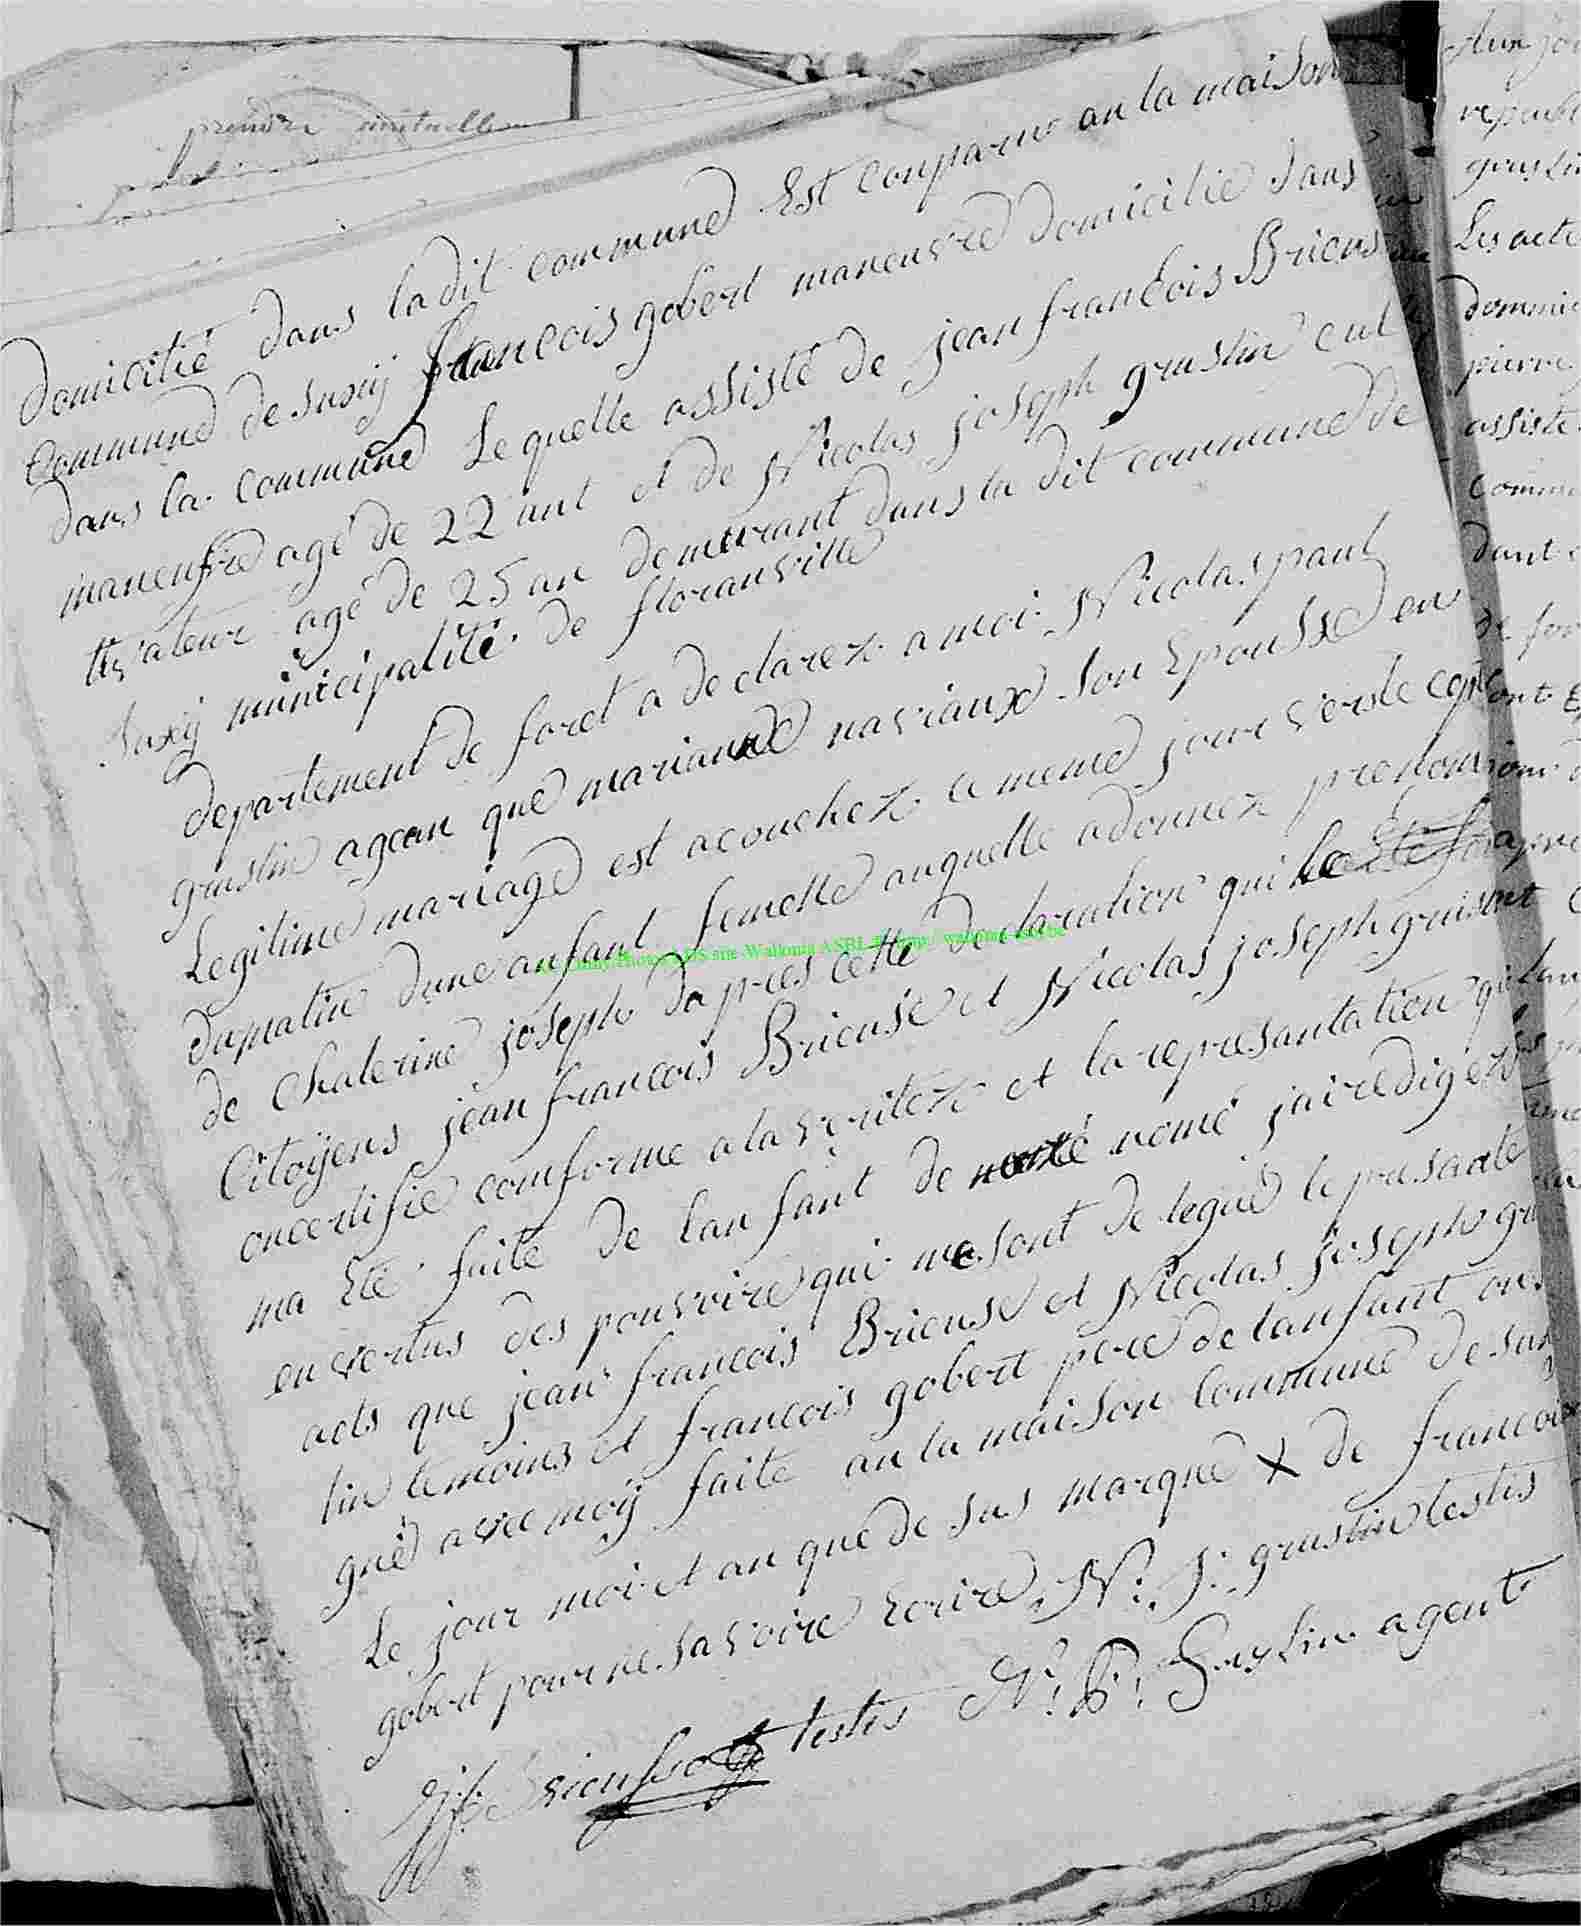 prendre mutuellem
domicilié dans ladit commune Est comparu au la maison
commune de suxÿ francois gobert maneuvre domicilié dans
dans la commune Lequelle assisté de jean francois Briens
maneufre agé de 22 ant et de Nicolas joseph gruslin cul
tivateur agé de 25 an demeurant dans la dit commune de
suxÿ municipalité de floranville
departement de foret a declarez a moi Nicolas paul
gruslin agean que marianne naviaux son Epousse en
Legitime mariage est acouchez ce meme jour vers le
dumatin dune anfant femelle auquelle adonnez prenom
de Chaterine joseph dapres cette declaration qui
Citoÿens jean francois Brieuse et Nicolas joseph
oncertifie comforme ala veritez et la represantation
ma Eté faite de lanfant de nomé jairedigez
envertus des pouvoire qui me sont delegué le presante
acts que jean francois Brieuse et Nicolas joseph grus
lin temoins et francois gobert pere de lanfant on
gné avec moÿ faite au la maison Commune de sux
Le jour moi et an que de sus marque X de francois
gobert pour ne savoire Ecrire N: J: gruslin testis
testis N: P: Gruslin agent
Aux jou
republ
gruslin
Les acte
dommic
pierre
assiste
commu
dont
de for